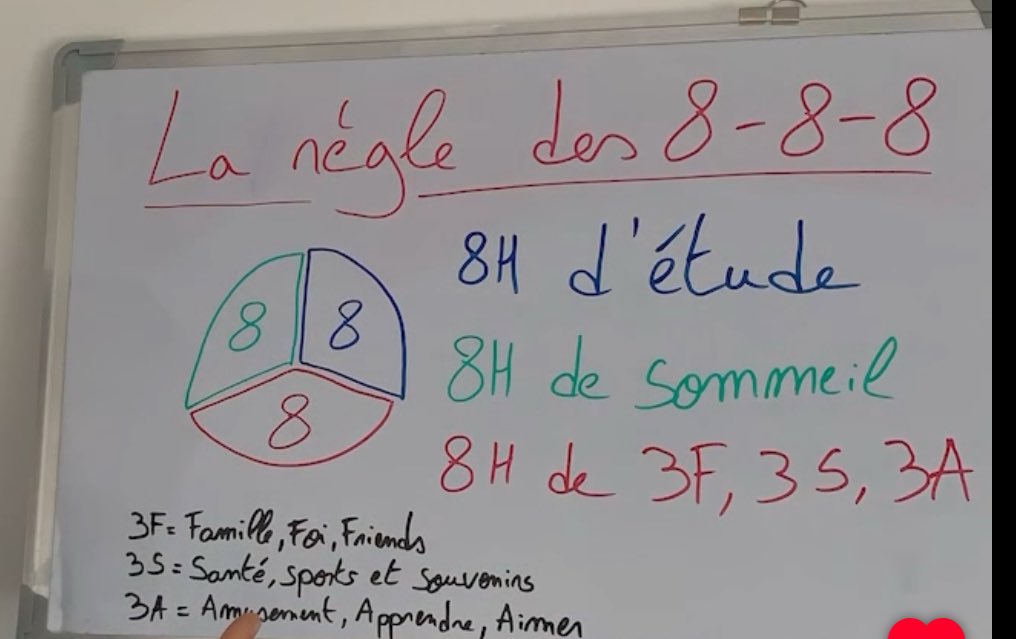 La règle des 8-8-8
8 8
8
8H d'étude
8H de sommeil
8H de 3F, 3S, 3A
3F= Famille, Foi, Friends
3S = Santé, sports et souvenirs
3A = Amusement, Apprendre, Aimer